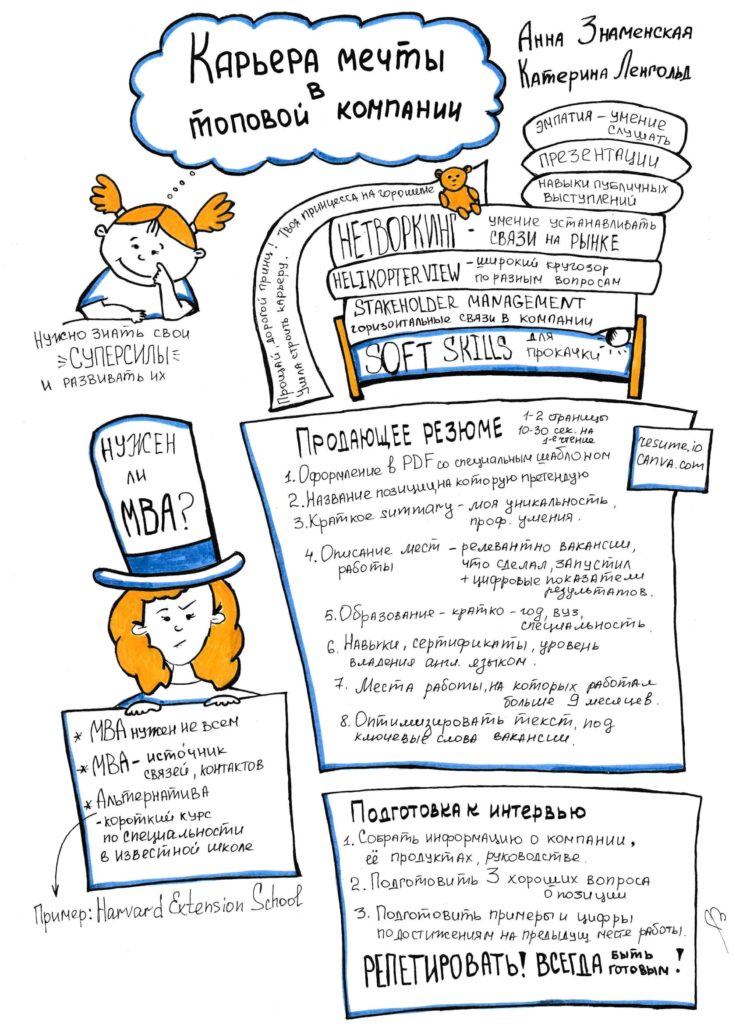 Карьера мечты
в
топовой компании
Анна Знаменская
Катерина Ленгольд
Эмпатия – умение
слушать
Презентации
Навыки публичных
выступлений
Нетворкинг – умение устанавливать
связи на рынке
Helikopter view – широкий кругозор
по разным вопросам
Stakeholder management
горизонтальные связи в компании
Soft skills для
прокачки
Прощай, дорогой принц! Твоя принцесса на горошине
Ушла строить карьеру.
Нужно знать свои
суперсилы
и развивать их
Нужен
ли
МВА?
* МВА нужен не всем
* МВА – источник
связей, контактов
* Альтернатива
- короткий курс
по специальности
в известной школе
Пример: Harvard Extension School
Продающее резюме
1-2 страницы
10-30 сек. на
1-е чтение
resume.io
canva.com
1. Оформление в PDF со специальным шаблоном
2. Название позиции, на которую претендую
3. Краткое summary – моя уникальность,
проф. умения.
4. Описание мест – релевантно вакансии,
работы что сделал, запустил
+ цифровые показатели
результатов.
5. Образование – кратко – год, вуз,
специальность.
6. Навыки, сертификаты, уровень
владения англ. языком.
7. Места работы, на которых работал
больше 9 месяцев.
8. Оптимизировать текст под
ключевые слова вакансии.
Подготовка к интервью
1. Собрать информацию о компании,
её продуктах, руководстве.
2. Подготовить 3 хороших вопроса
о позиции
3. Подготовить примеры и цифры
по достижениям на предыдущ. месте работы.
Репетировать! Всегда быть
готовым!